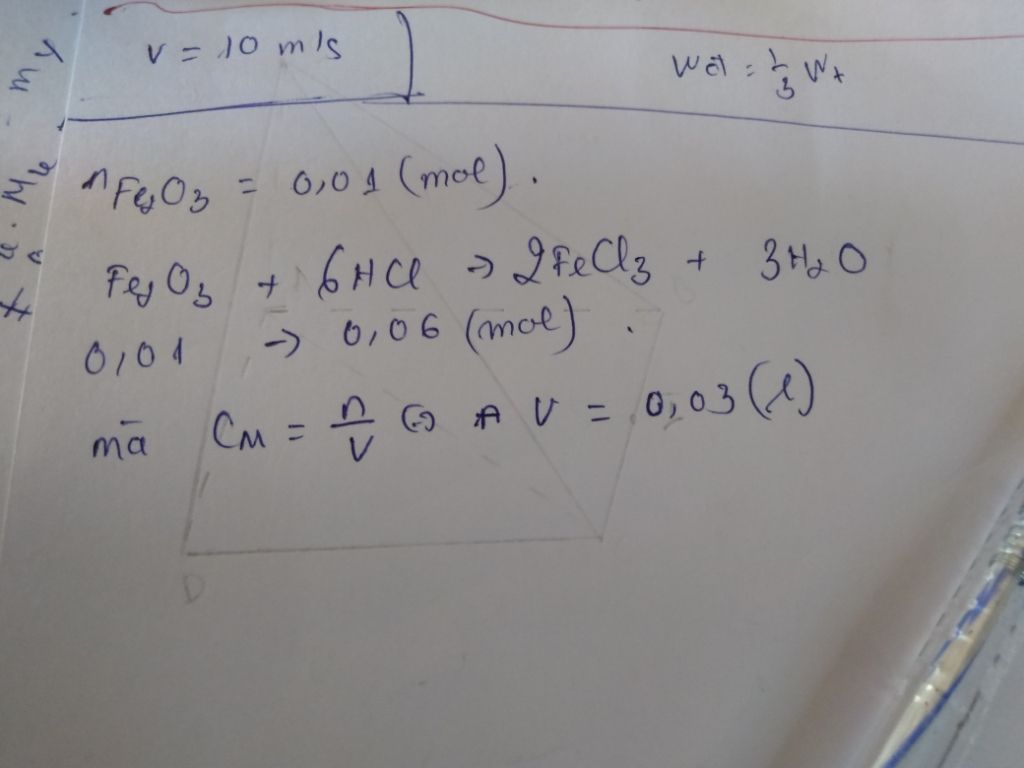 v = 10 m/s
Wđ = 1/3 Wt
nFe2O3 = 0,01 (mol).
Fe2O3 + 6HCl → 2FeCl3 + 3H2O
0,01 → 0,06 (mol).
mà CM = n/V ⇔ V = 0,03 (l)
D